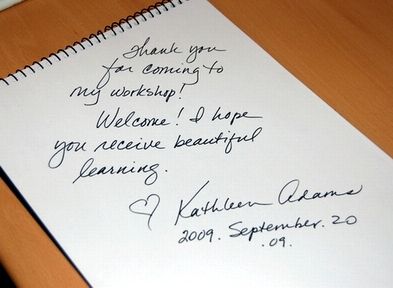 Thank you
for coming to
my workshop!
Welcome! I hope
you receive beautiful
learning.
♡ Kathleen Adams
2009. September. 20
.09.